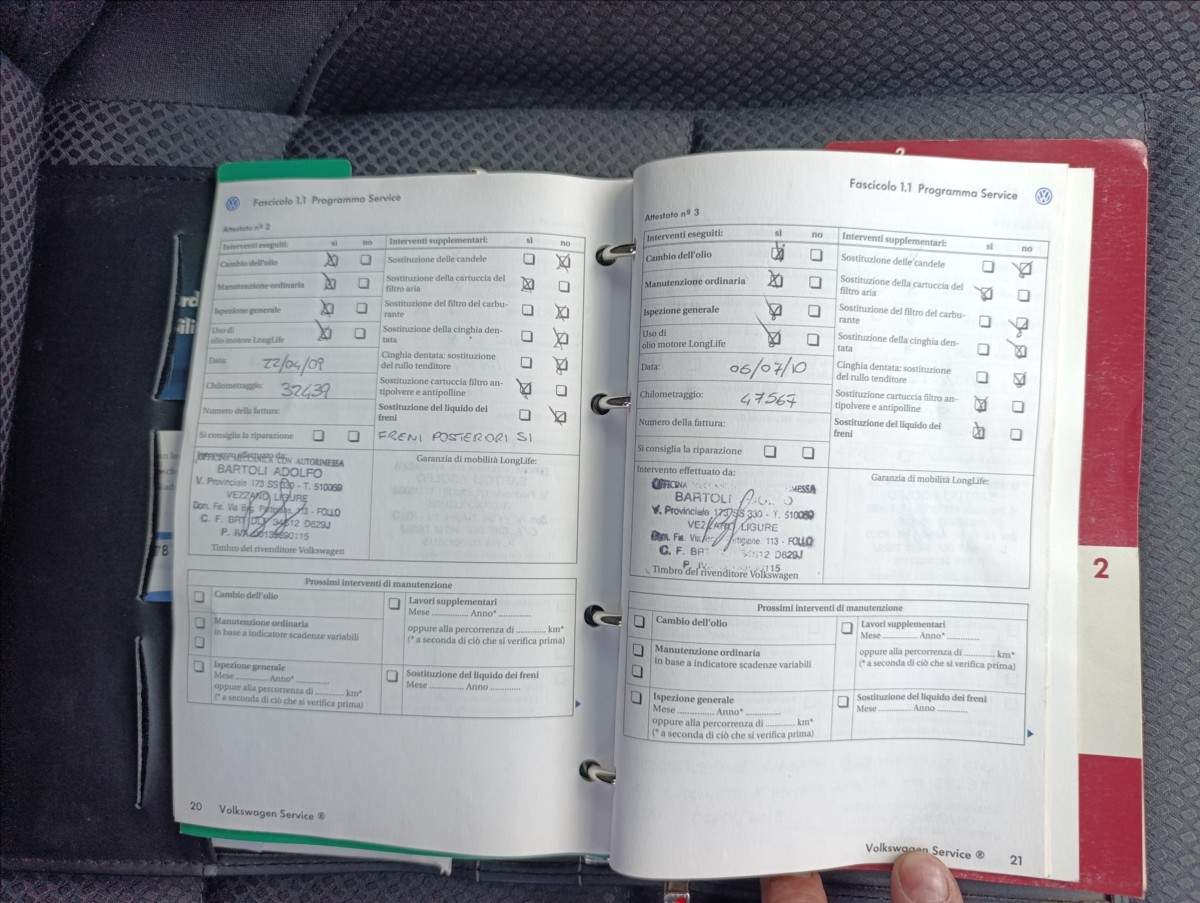 Fascicolo 1.1 Programma Service
Attestato nº 2
Interventi eseguiti: sì no
Cambio dell'olio
Manutenzione ordinaria
Ispezione generale
Uso di
olio motore LongLife
Data: 22/04/09
Chilometraggio: 32439
Numero della fattura:
Si consiglia la riparazione
Interventi supplementari: sì no
Sostituzione delle candele
Sostituzione della cartuccia del
filtro aria
Sostituzione del filtro del carbu-
rante
Sostituzione della cinghia den-
tata
Cinghia dentata: sostituzione
del rullo tenditore
Sostituzione cartuccia filtro an-
tipolvere e antipolline
Sostituzione del liquido dei
freni
FRENI POSTERIORI SI
Intervento effettuato da:
OFFICINA MECCANICA CON AUTORIMESSA
BARTOLI ADOLFO
V. Provinciale 173 SS 330 - T. 510069
VEZZANO LIGURE
Dom. Fis. Via 113 - FOLLO
C. F. BRT 34S12 D629J
P. IVA
Timbro del rivenditore Volkswagen
Garanzia di mobilità LongLife:
Prossimi interventi di manutenzione
Cambio dell'olio
Manutenzione ordinaria
in base a indicatore scadenze variabili
Ispezione generale
Mese Anno*
oppure alla percorrenza di km*
(* a seconda di ciò che si verifica prima)
Lavori supplementari
Mese Anno*
oppure alla percorrenza di km*
(* a seconda di ciò che si verifica prima)
Sostituzione del liquido dei freni
Mese Anno
20 Volkswagen Service ®
Fascicolo 1.1 Programma Service
Attestato nº 3
Interventi eseguiti: sì no
Cambio dell'olio
Manutenzione ordinaria
Ispezione generale
Uso di
olio motore LongLife
Data: 06/07/10
Chilometraggio: 47567
Numero della fattura:
Si consiglia la riparazione
Interventi supplementari: sì no
Sostituzione delle candele
Sostituzione della cartuccia del
filtro aria
Sostituzione del filtro del carbu-
rante
Sostituzione della cinghia den-
tata
Cinghia dentata: sostituzione
del rullo tenditore
Sostituzione cartuccia filtro an-
tipolvere e antipolline
Sostituzione del liquido dei
freni
Intervento effettuato da:
OFFICINA
BARTOLI
V. Provinciale 173 SS 330 - T. 510069
VEZZANO LIGURE
Dom. Fis. Via 113 - FOLLO
C. F. D629J
Timbro del rivenditore Volkswagen
Garanzia di mobilità LongLife:
Prossimi interventi di manutenzione
Cambio dell'olio
Manutenzione ordinaria
in base a indicatore scadenze variabili
Ispezione generale
Mese Anno*
oppure alla percorrenza di km*
(* a seconda di ciò che si verifica prima)
Lavori supplementari
Mese Anno*
oppure alla percorrenza di km*
(* a seconda di ciò che si verifica prima)
Sostituzione del liquido dei freni
Mese Anno
Volkswagen Service ® 21
2